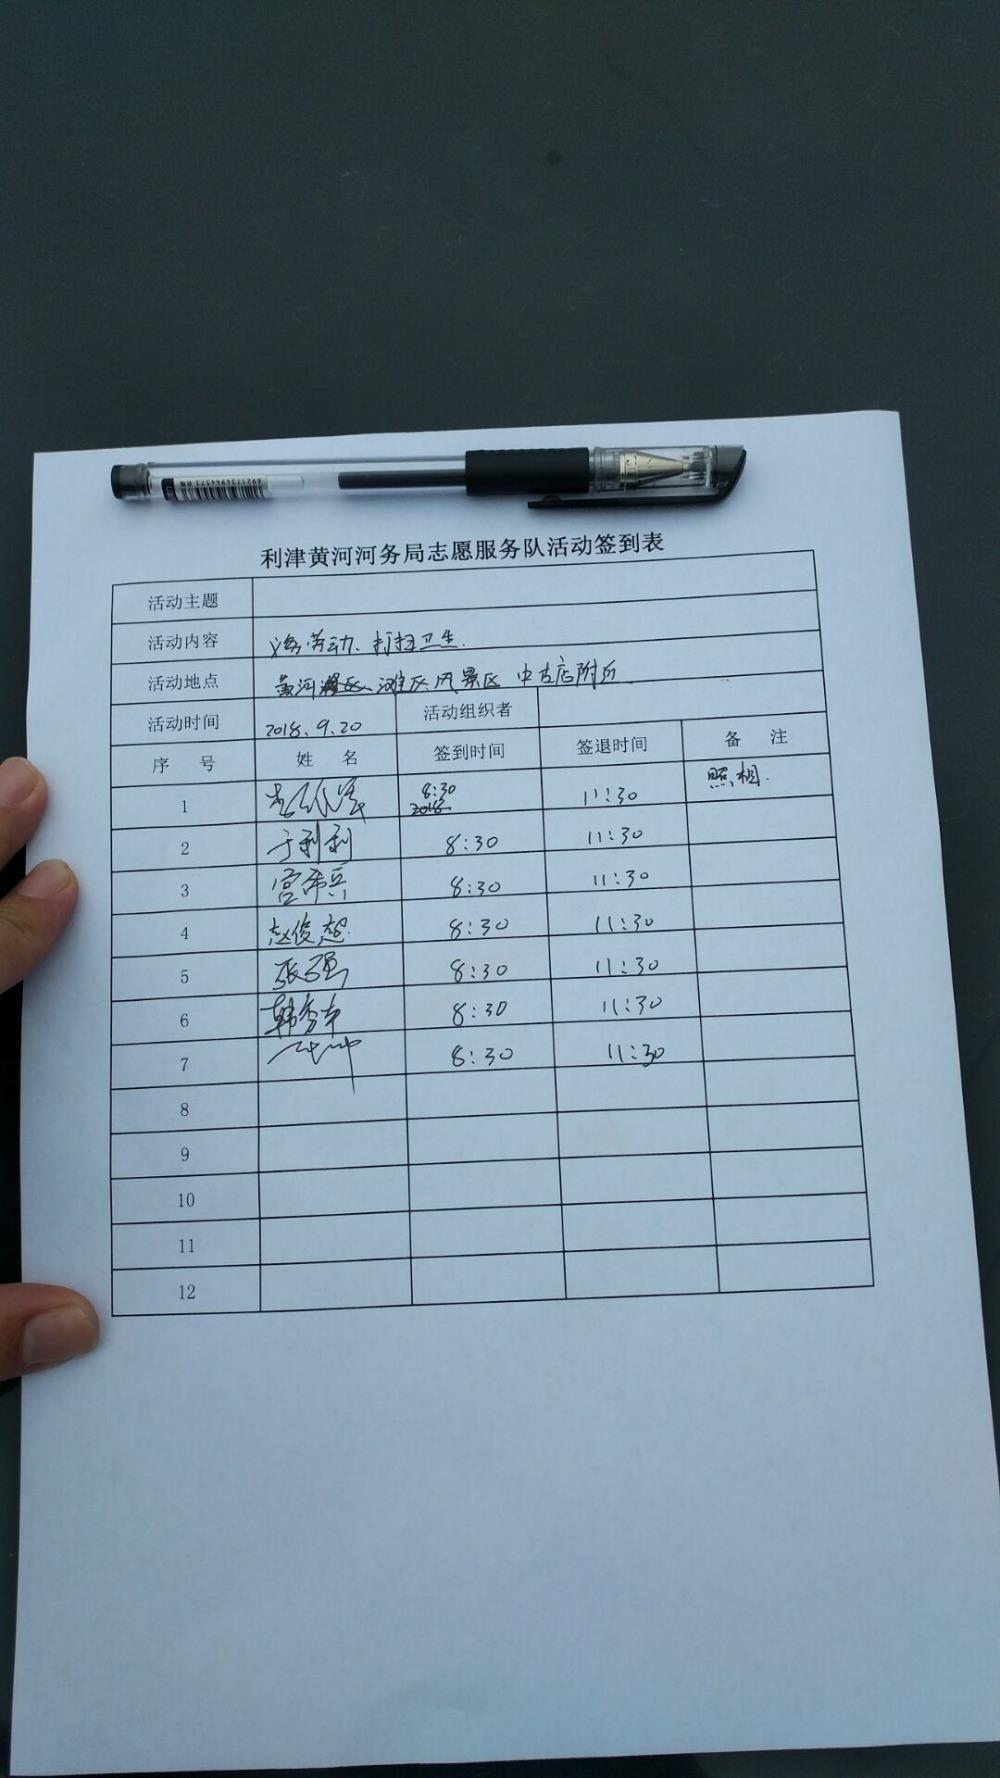 利津黄河河务局志愿服务队活动签到表
活动主题
活动内容 义务劳动、打扫卫生.
活动地点 黄河滩区风景区 中古店附近
活动时间 2018.9.20 活动组织者
序 号 姓 名 签到时间 签退时间 备 注
1 8:30 11:30 照相.
2 于利利 8:30 11:30
3 8:30 11:30
4 赵俊 8:30 11:30
5 张强 8:30 11:30
6 韩秀 8:30 11:30
7 8:30 11:30
8
9
10
11
12